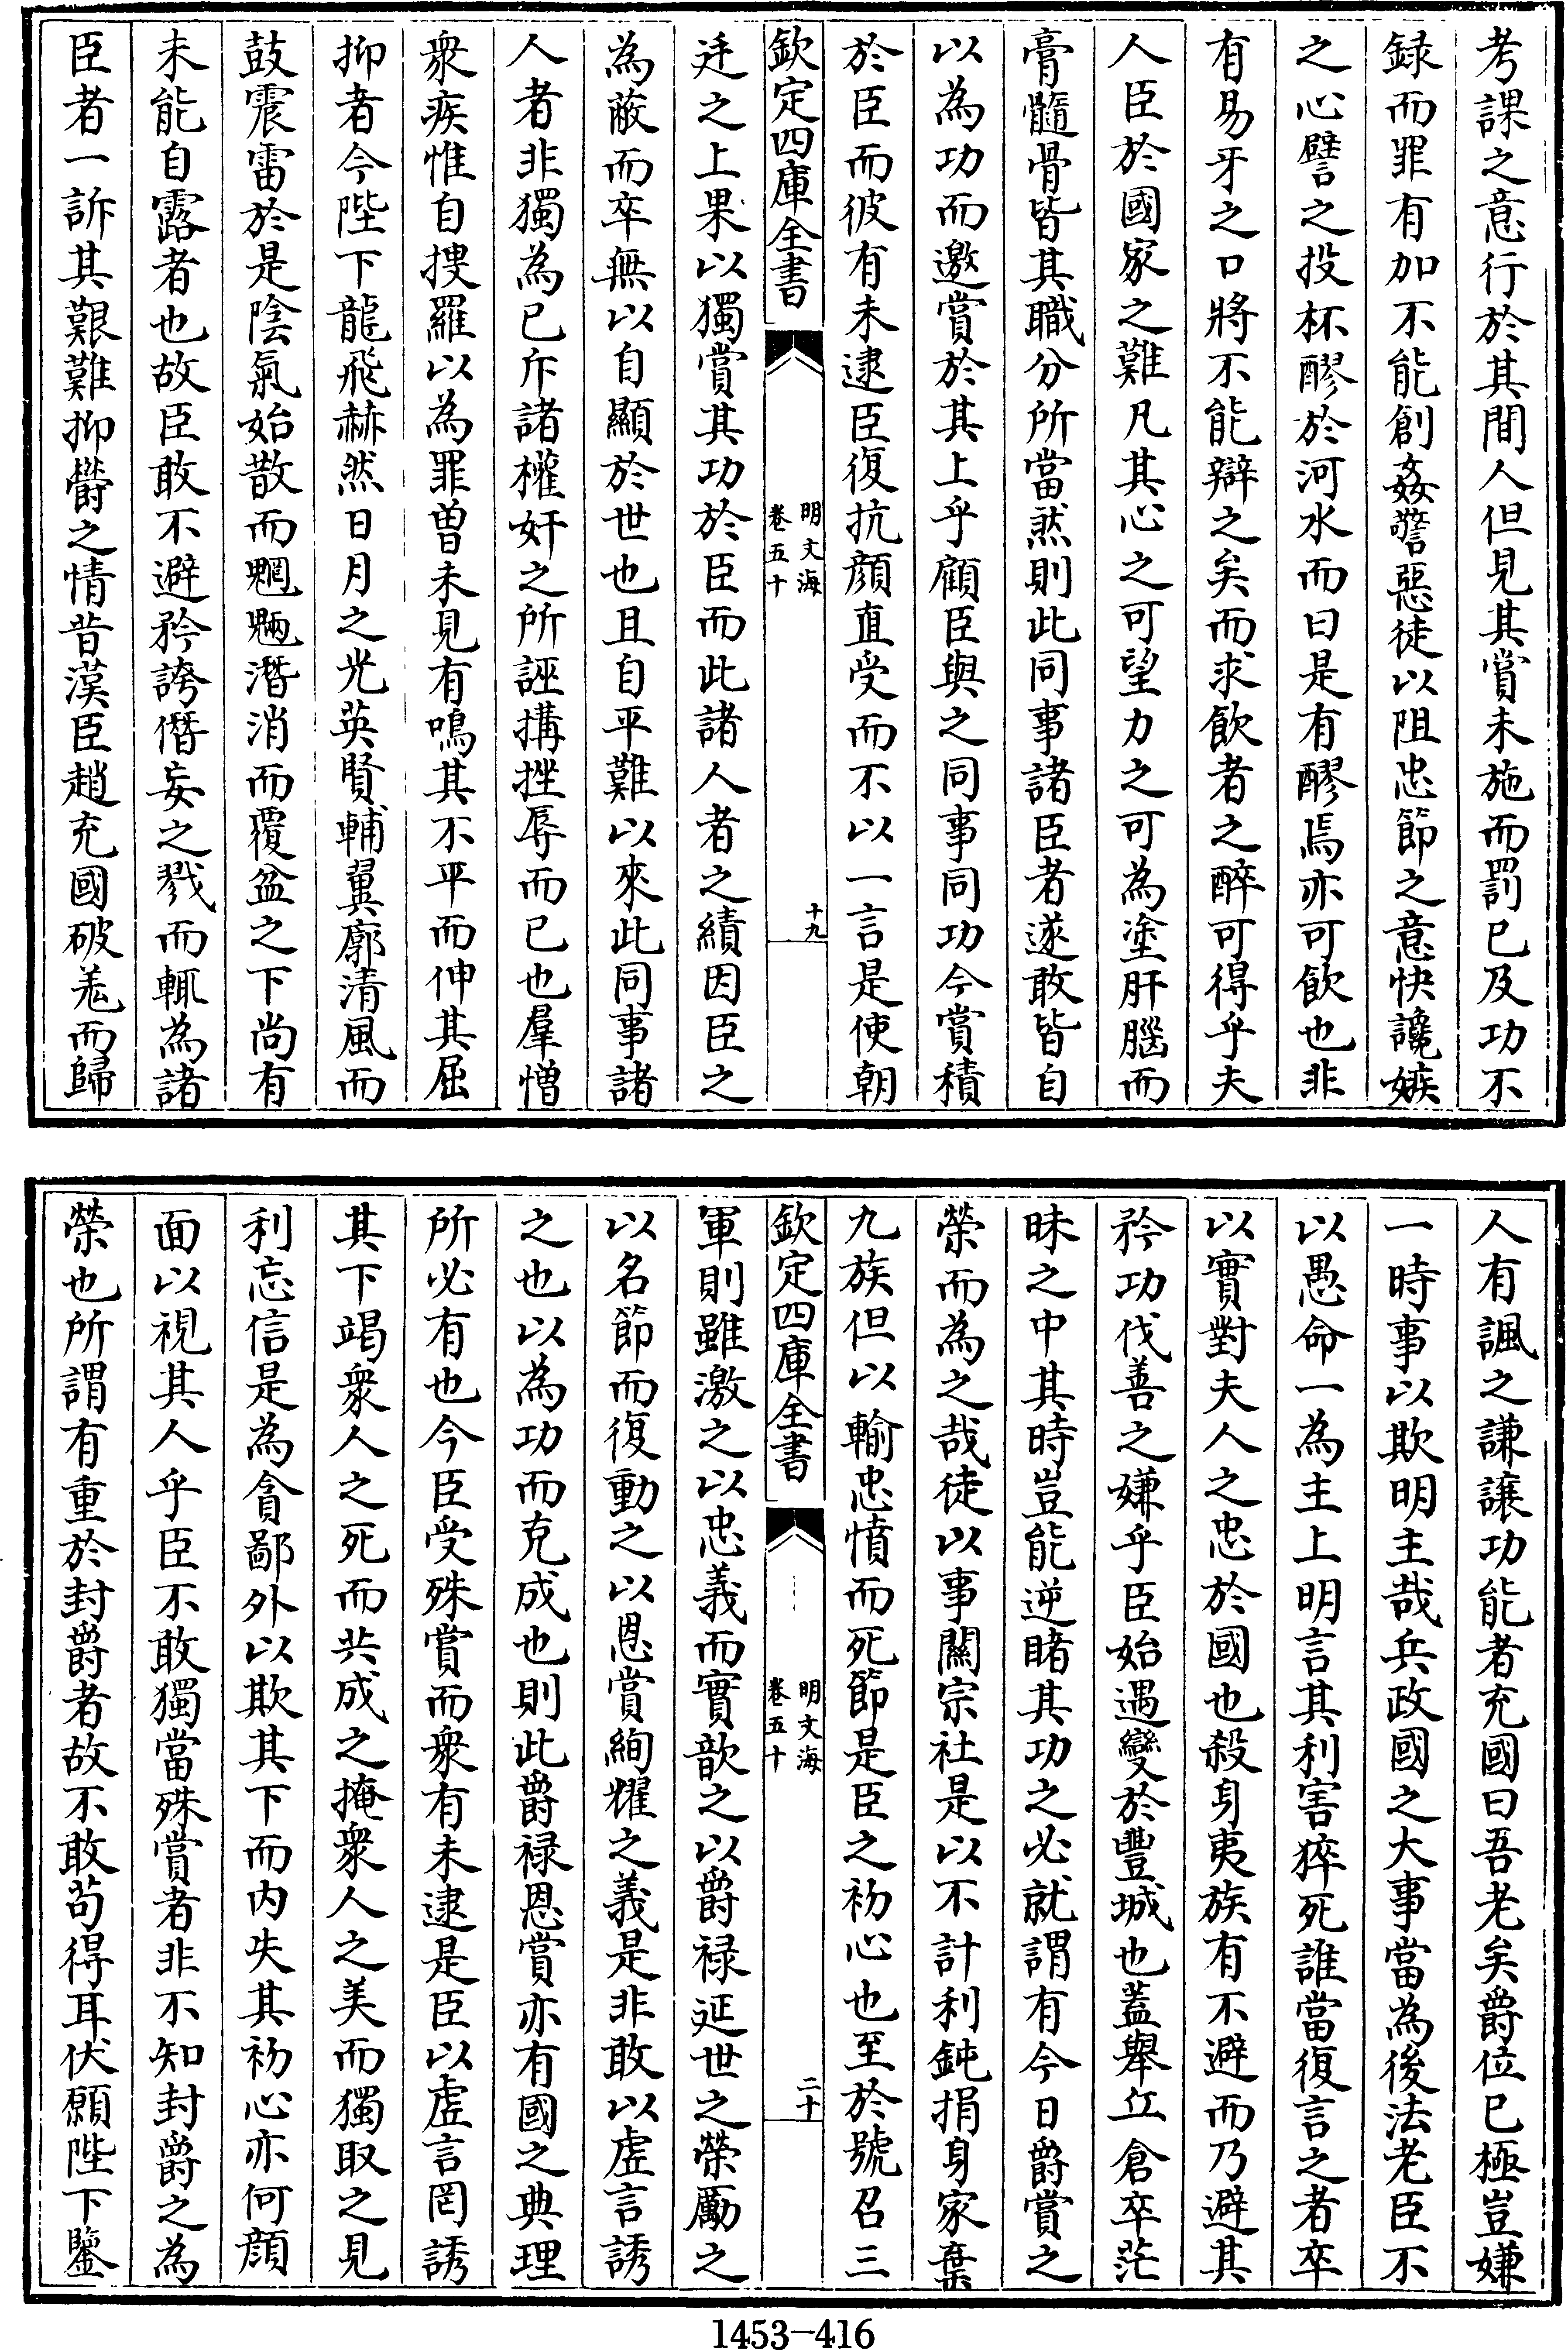 考課之意行於其間人但見其賞未施而罰已及功不
録而罪有加不能創姦警惡徒以阻忠節之意快讒嫉
之心譬之投杯醪於河水而曰是有醪焉亦可飲也非
有易牙之口將不能辯之矣而求飲者之醉可得乎夫
人臣於國家之難凡其心之可望力之可為塗肝腦而
膏髓骨皆其職分所當然則此同事諸臣者遂敢皆自
以為功而邀賞於其上乎顧臣與之同事同功今賞積
於臣而彼有未逮臣復抗顔直受而不以一言是使朝
欽定四庫全書
明文海
卷五十
十九
廷之上果以獨賞其功於臣而此諸人者之績因臣之
為蔽而卒無以自顯於世也且自平難以來此同事諸
人者非獨為已斥諸權奸之所誣搆挫辱而已也羣憎
衆疾惟自搜羅以為罪曽未見有鳴其不平而伸其屈
抑者今陛下龍飛赫然日月之光英賢輔翼廓清風而
鼓震雷於是陰氣始散而魍魎潛消而覆盆之下尚有
未能自露者也故臣敢不避矜誇僭妄之戮而輒為諸
臣者一訴其艱難抑鬱之情昔漢臣趙充國破羗而歸
人有諷之謙讓功能者充國曰吾老矣爵位已極豈嫌
一時事以欺明主哉兵政國之大事當為後法老臣不
以愚命一為主上明言其利害猝死誰當復言之者卒
以實對夫人之忠於國也殺身夷族有不避而乃避其
矜功伐善之嫌乎臣始遇變於豐城也蓋舉立倉卒茫
昧之中其時豈能逆睹其功之必就謂有今日爵賞之
榮而為之哉徒以事關宗社是以不計利鈍捐身家棄
九族但以輸忠憤而死節是臣之初心也至於號召三
欽定四庫全書
明文海
卷五十
二十
軍則雖激之以忠義而實歆之以爵禄延世之榮勵之
以名節而復動之以恩賞絢耀之義是非敢以虛言誘
之也以為功而克成也則此爵禄恩賞亦有國之典理
所必有也今臣受殊賞而衆有未逮是臣以虛言罔誘
其下竭衆人之死而共成之掩衆人之美而獨取之見
利忘信是為貪鄙外以欺其下而内失其初心亦何顔
面以視其人乎臣不敢獨當殊賞者非不知封爵之為
榮也所謂有重於封爵者故不敢茍得耳伏願陛下鑒
1453-416